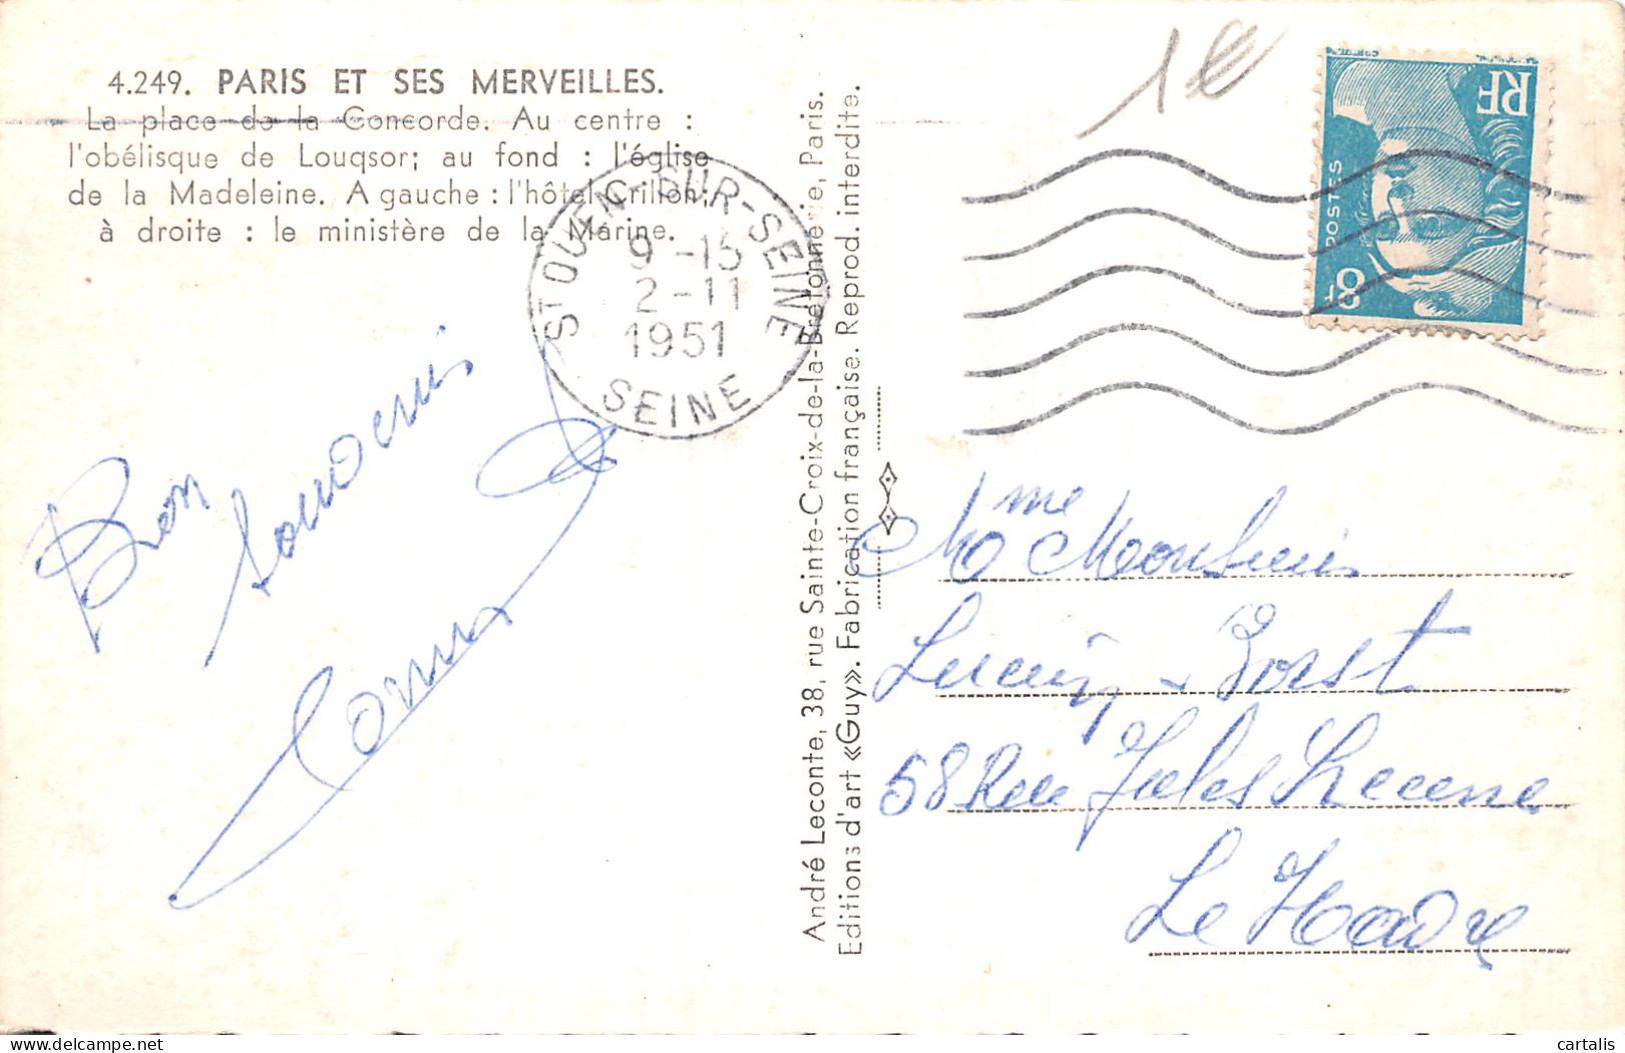 4.249. PARIS ET SES MERVEILLES.
La place de la Concorde. Au centre :
l'obélisque de Louqsor; au fond : l'église
de la Madeleine. A gauche : l'hôtel Crillon;
à droite : le ministère de la Marine.
ST OUEN-SUR-SEINE
9-15
2-11
1951
SEINE
Bon
souvenir
André Leconte, 38, rue Sainte-Croix-de-la-Bretonnerie, Paris.
Editions d'art «Guy». Fabrication française. Reprod. interdite.
1€
RF
POSTES
8F
Mme Monsieur
58 Rue Jules Lecesne
Le Havre
cartalis